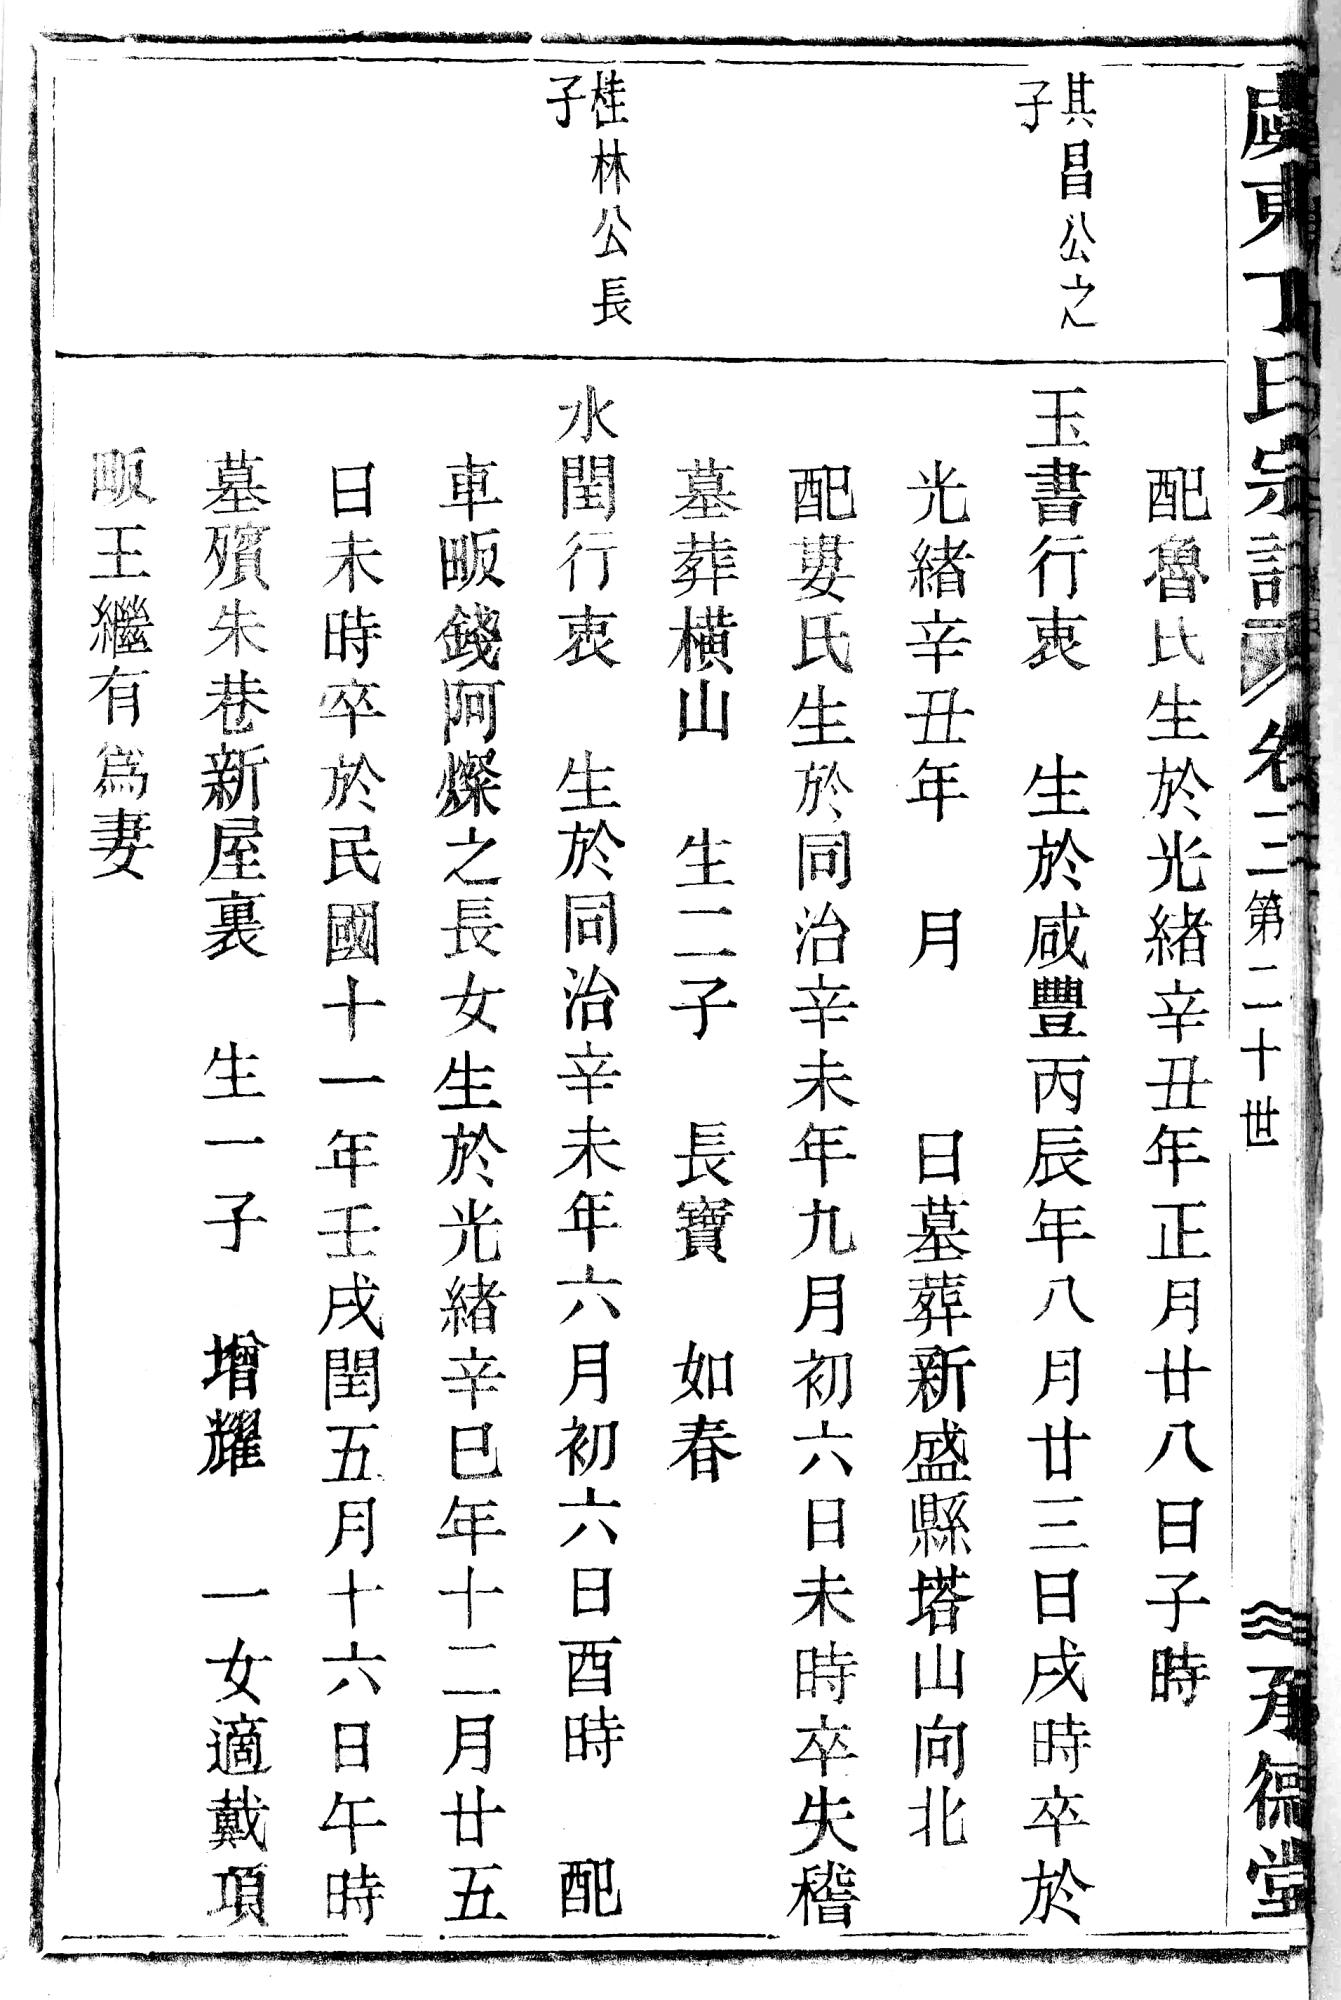 虞東丁氏宗譜 卷三 第二十世 承德堂
配魯氏生於光緒辛丑年正月廿八日子時
其昌公之
子
玉書行衷 生於咸豐丙辰年八月廿三日戌時卒於
光緒辛丑年 月 日墓葬新盛縣塔山向北
配婁氏生於同治辛未年九月初六日未時卒失稽
墓葬橫山 生二子 長寶 如春
桂林公長
子
水閏行衷 生於同治辛未年六月初六日酉時 配
車畈錢阿燦之長女生於光緒辛巳年十二月廿五
日未時卒於民國十一年壬戌閏五月十六日午時
墓殯朱巷新屋裏 生一子 增耀 一女適戴項
畈王繼有爲妻